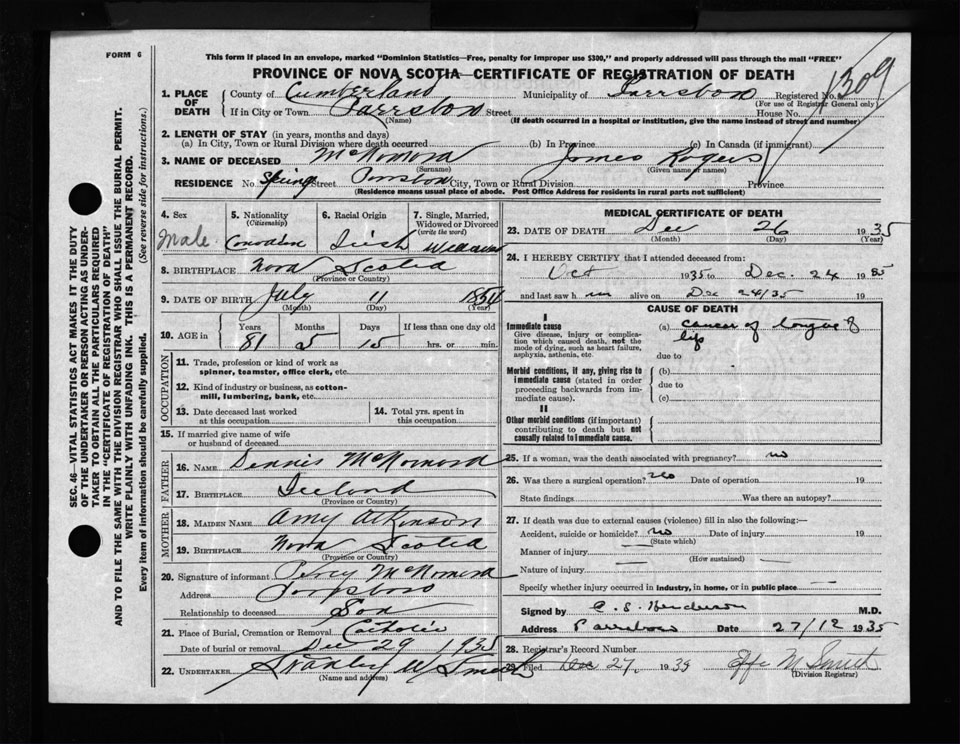 FORM 6
This form if placed in an envelope, marked "Dominion Statistics—Free, penalty for improper use $300," and properly addressed will pass through the mail "FREE"
PROVINCE OF NOVA SCOTIA—CERTIFICATE OF REGISTRATION OF DEATH
1309
1. PLACE OF DEATH
County of Cumberland Municipality of Parrsboro Registered No.
(For use of Registrar General only)
If in City or Town Parrsboro Street House No.
(Name) (If death occurred in a hospital or institution, give the name instead of street and number)
2. LENGTH OF STAY (in years, months and days)
(a) In City, Town or Rural Division where death occurred (b) In Province (c) In Canada (if immigrant)
3. NAME OF DECEASED McNamara James Rogers
(Surname) (Given name or names)
RESIDENCE No. Spring Street Parrsboro City, Town or Rural Division Province
(Residence means usual place of abode. Post Office Address for residents in rural parts not sufficient)
4. Sex Male
5. Nationality (Citizenship) Canadian
6. Racial Origin Irish
7. Single, Married, Widowed or Divorced (write the word) Widowed
8. BIRTHPLACE Nova Scotia
(Province or Country)
9. DATE OF BIRTH July 11 1854
(Month) (Day) (Year)
10. AGE in Years Months Days If less than one day old
81 5 15 hrs. or min.
OCCUPATION
11. Trade, profession or kind of work as spinner, teamster, office clerk, etc.
12. Kind of industry or business, as cotton-mill, lumbering, bank, etc.
13. Date deceased last worked at this occupation
14. Total yrs. spent in this occupation
15. If married give name of wife or husband of deceased
FATHER
16. NAME Dennis McNamara
17. BIRTHPLACE Ireland
(Province or Country)
MOTHER
18. MAIDEN NAME Amy Atkinson
19. BIRTHPLACE Nova Scotia
(Province or Country)
20. Signature of informant Percy McNamara
Address Parrsboro
Relationship to deceased Son
21. Place of Burial, Cremation or Removal Catholic
Date of burial or removal Dec 29 1935
22. UNDERTAKER Stanley W Smith
(Name and address)
MEDICAL CERTIFICATE OF DEATH
23. DATE OF DEATH Dec 26 1935
(Month) (Day) (Year)
24. I HEREBY CERTIFY that I attended deceased from:
Oct 1935 to Dec. 24 1935
and last saw h im alive on Dec 24/35 19
CAUSE OF DEATH
I
Immediate cause
Give disease, injury or complication which caused death, not the mode of dying, such as heart failure, asphyxia, asthenia, etc.
(a) cancer of tongue &
lip
due to
Morbid conditions, if any, giving rise to immediate cause (stated in order proceeding backwards from immediate cause).
(b)
due to
(c)
II
Other morbid conditions (if important) contributing to death but not causally related to immediate cause.
25. If a woman, was the death associated with pregnancy? no
26. Was there a surgical operation? no Date of operation 19
State findings Was there an autopsy?
27. If death was due to external causes (violence) fill in also the following:—
Accident, suicide or homicide? no Date of injury 19
(State which)
Manner of injury
(How sustained)
Nature of injury
Specify whether injury occurred in industry, in home, or in public place
Signed by C. S. Henderson M.D.
Address Parrsboro Date 27/12 1935
28. Registrar's Record Number
29. Filed Dec 27, 1935 Effie M Smith
(Division Registrar)
SEC. 46—VITAL STATISTICS ACT MAKES IT THE DUTY
OF THE UNDERTAKER OR PERSON ACTING AS UNDER-
TAKER TO OBTAIN ALL THE PARTICULARS REQUIRED
IN THE "CERTIFICATE OF REGISTRATION OF DEATH"
AND TO FILE THE SAME WITH THE DIVISION REGISTRAR WHO SHALL ISSUE THE BURIAL PERMIT.
WRITE PLAINLY WITH UNFADING INK. THIS IS A PERMANENT RECORD.
Every item of information should be carefully supplied. (See reverse side for instructions.)